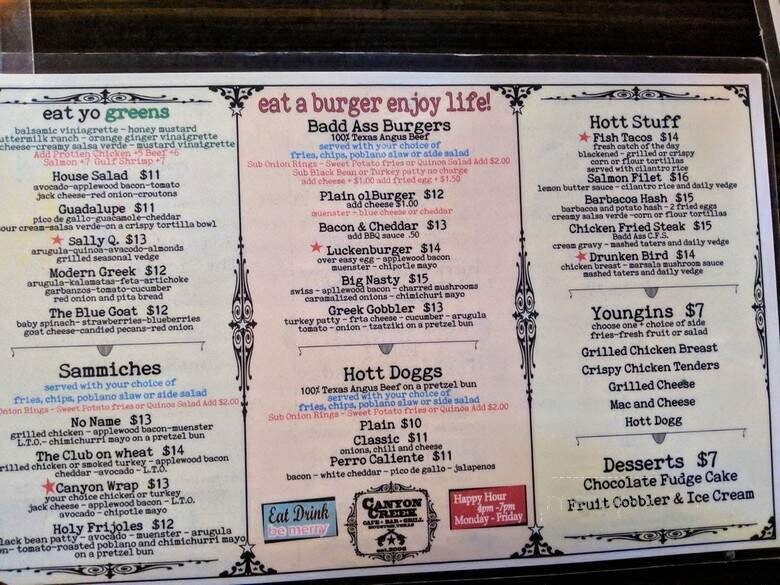 eat yo greens
balsamic viniagrette - honey mustard
ranch - orange ginger vinaigrette
cheese-creamy salsa verde - mustard vinaigrette
Add Protien Chicken +5 Beef +6
Salmon +7 Gulf Shrimp +7
House Salad $11
avocado-applewood bacon-tomato
jack cheese-red onion-croutons
Guadalupe $11
pico de gallo-guacamole-cheddar
cream-salsa verde-on a crispy tortilla bowl
Sally Q. $13
arugula-quinoa-avacado-almonds
grilled seasonal vedge
Modern Greek $12
arugula-kalamatas-feta-artichoke
garbanzos-tomato-cucumber
red onion and pita bread
The Blue Goat $12
baby spinach- strawberries-blueberries
goat cheese-candied pecans-red onion
Sammiches
served with your choice of
fries, chips, poblano slaw or side salad
Onion Rings - Sweet Potato fries or Quinoa Salad Add $2.00
No Name $13
grilled chicken - applewood bacon-muenster
L.T.O.- chimichurri mayo on a pretzel bun
The Club on wheat $14
grilled chicken or smoked turkey - applewood bacon
cheddar -avocado - L.T.O.
Canyon Wrap $13
your choice chicken or turkey
jack cheese - applewood bacon - L.T.O.
avocado - chipotle mayo
Holy Frijoles $12
black bean patty - avocado - muenster - arugula
tomato-roasted poblano and chimichuri mayo
on a pretzel bun
eat a burger enjoy life!
Badd Ass Burgers
100% Texas Angus Beef
served with your choice of
fries, chips, poblano slaw or side salad
Sub Onion Rings - Sweet Potato fries or Quinoa Salad Add $2.00
Sub Black Bean or Turkey patty no charge
add cheese + $1.00 add fried egg + $1.50
Plain olBurger $12
add cheese $1.00
muenster - blue cheese or cheddar
Bacon & Cheddar $13
add BBQ sauce .50
Luckenburger $14
over easy egg - applewood bacon
muenster - chipotle mayo
Big Nasty $15
swiss - apllewood bacon - charred mushrooms
caramalized onions - chimichuri mayo
Greek Gobbler $13
turkey patty - frta cheese - cucumber - arugula
tomato - onion - tzatziki on a pretzel bun
Hott Doggs
100% Texas Angus Beef on a pretzel bun
served with your choice of
fries, chips, poblano slaw or side salad
Sub Onion Rings - Sweet Potato fries or Quinoa Add $2.00
Plain $10
Classic $11
onions, chili and cheese
Perro Caliente $11
bacon - white cheddar - pico de gallo - jalapenos
Eat Drink
be merry
CANYON
CREEK
CAFE - BAR - GRILL
Happy Hour
4pm -7pm
Monday - Friday
Hott Stuff
Fish Tacos $14
fresh catch of the day
blackened - grilled or crispy
corn or flour tortillas
served with cilantro rice
Salmon Filet $16
lemon butter sauce - cilantro rice and daily vedge
Barbacoa Hash $15
barbacoa and potato hash - 2 fried eggs
creamy salsa verde -corn or flour tortillas
Chicken Fried Steak $15
Badd Ass C.F.S.
cream gravy - mashed taters and daily vedge
Drunken Bird $14
chicken breast - marsala mushroom sauce
mashed taters and daily vedge
Youngins $7
choose one + choice of side
fries-fresh fruit or salad
Grilled Chicken Breast
Crispy Chicken Tenders
Grilled Cheese
Mac and Cheese
Hott Dogg
Desserts $7
Chocolate Fudge Cake
Fruit Cobbler & Ice Cream